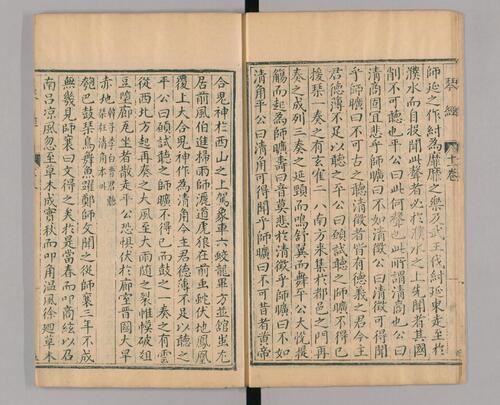 琴經 十一卷
師延之作紂為靡靡之樂及武王伐紂延東走至於
濮水而自投聞此聲者必於濮水之上先聞者其國
削不可聽也平公曰此何聲也此所謂清商也公曰
清商固宜悲乎師曠曰不如清徵公曰清徵可得聞
乎師曠曰不可古之聽清徵者皆有德義之君今主
君德薄不足以聽之平公曰願試聽之師曠不得已
援琴一奏之有玄鶴二八南方來集於都邑之門再
奏之成列三奏之延頸而鳴舒翼而舞平公大悅提
觴而起為師曠壽曰音莫悲於清徵乎師曠曰不如
清角平公曰清角可得聞乎師曠曰不可昔者黃帝
合鬼神於西山之上駕象車六蛟龍畢方並舘蚩尤
居前風伯進掃雨師灑道虎狼在前虫蛇伏地鳳凰
覆上大合鬼神作為清角今主君德薄不足以聽之
平公曰願試聽之師曠不得已而鼓之一奏之有雲
從西北方起再奏之大風至大雨隨之裂帷幙破俎
豆墮廊瓦坐者散走平公恐惧伏於廊室晉國大旱
赤地
瓠巴鼓琴鳥舞魚躍鄭師文聞之從師襄三年不成
無幾見師襄曰文得之矣於是當春而叩商絃以召
南呂凉風忽至草木成實秋而叩角温風徐迴草木